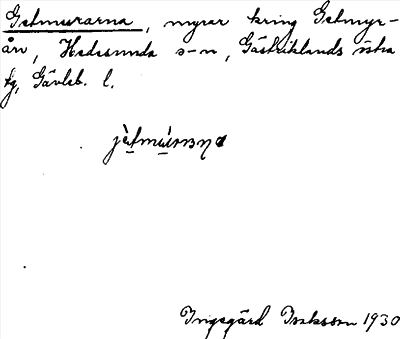 Getmurarna, myrar kring Getmyr-
ån, Hedesunda s-n, Gästriklands östra
tg, Gävleb. l.
Ingegärd Isaksson 1930